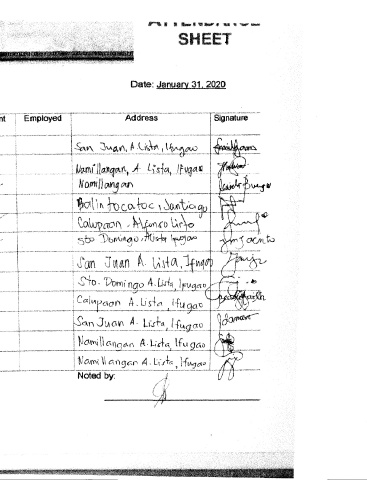 ATTENDANCE
SHEET
Date: January 31, 2020
nt Employed Address Signature
San Juan, A. Lista, Ifugao
Namillangan, A. Lista, Ifugao
Namillangan
Balintocatoc, Santiago
Calupaan, Alfonso Lista
Sto Domingo, Alista Ifugao
San Juan A. Lista, Ifugao
Sto. Domingo A. Lista, Ifugao
Calupaan A. Lista Ifugao
San Juan A. Lista, Ifugao
Namillangan A. Lista, Ifugao
Namillangan A. Lista, Ifugao
Noted by: